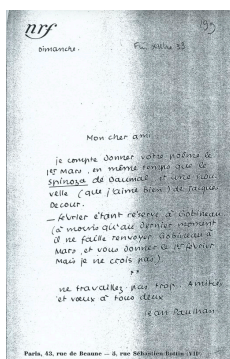 nrf
199
Dimanche.
Fin 33
Mon cher ami
je compte donner votre poème le
1er Mars, en même temps que le
Spinoza de Daumal, et une nou
velle (que j'aime bien) de Jacques
Decour.
— février étant réservé à Gobineau
(à moins qu'au dernier moment
il ne faille renvoyer Gobineau à
Mars, et vous donner le 1er février
Mais je ne crois pas).
ne travaillez pas trop. Amitiés
et vœux à tous deux
Jean Paulhan
Paris, 43, rue de Beaune — 5, rue Sébastien-Bottin (VIIe)